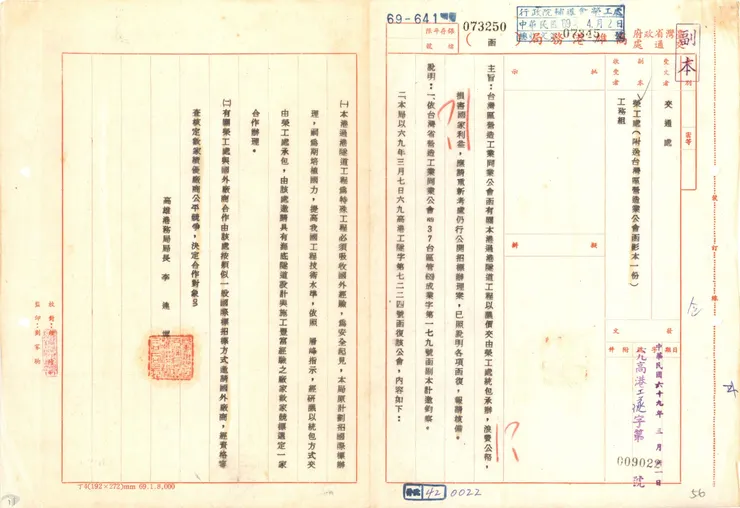 69-641
073250
行政院輔導會榮工處
中華民國69年4月2日
總收文 07345 號
副本
台灣省政府交通處高雄港務局(函)
受文者 交通處
副本收受者 榮工處(附送台灣區營造業公會函影本一份)
工務組
批示
擬辦
中華民國六十九年三月 日
高港工 字第
009022
號
主旨:台灣區營造工業同業公會函有關本港過港隧道工程以議價交由榮工處統包承辦,浪費公帑,
損害國家利益,應請重新考慮仍行公開招標辦理案,已照說明各項函復,報請核備。
說明:一、依台灣省營造工業同業公會 37台區營 成業字第一七九號函副本計邀鈞察。
二、本局以六九年三月七日六九高港工隧字第七二二四號函復該公會,內容如下:
㈠本港過港隧道工程為特殊工程必須吸收國外經驗,為安全起見,本局原計劃招國際標辦
理,嗣為期培植國力,提高我國工程技術水準,依照 層峰指示,經研議以統包方式交
由榮工處承包,由該處邀請具有海底隧道設計與施工豐富經驗之廠家數家競標選定一家
合作辦理。
㈡有關榮工處與國外廠商合作由該處按類似一般國際標招標方式邀請國外廠商,經資格審
查核定數家績優廠商公平競爭,決定合作對象。
高雄港務局局長 李連墀
了4(192×272)mm 69.1.8,000
42 0022
56